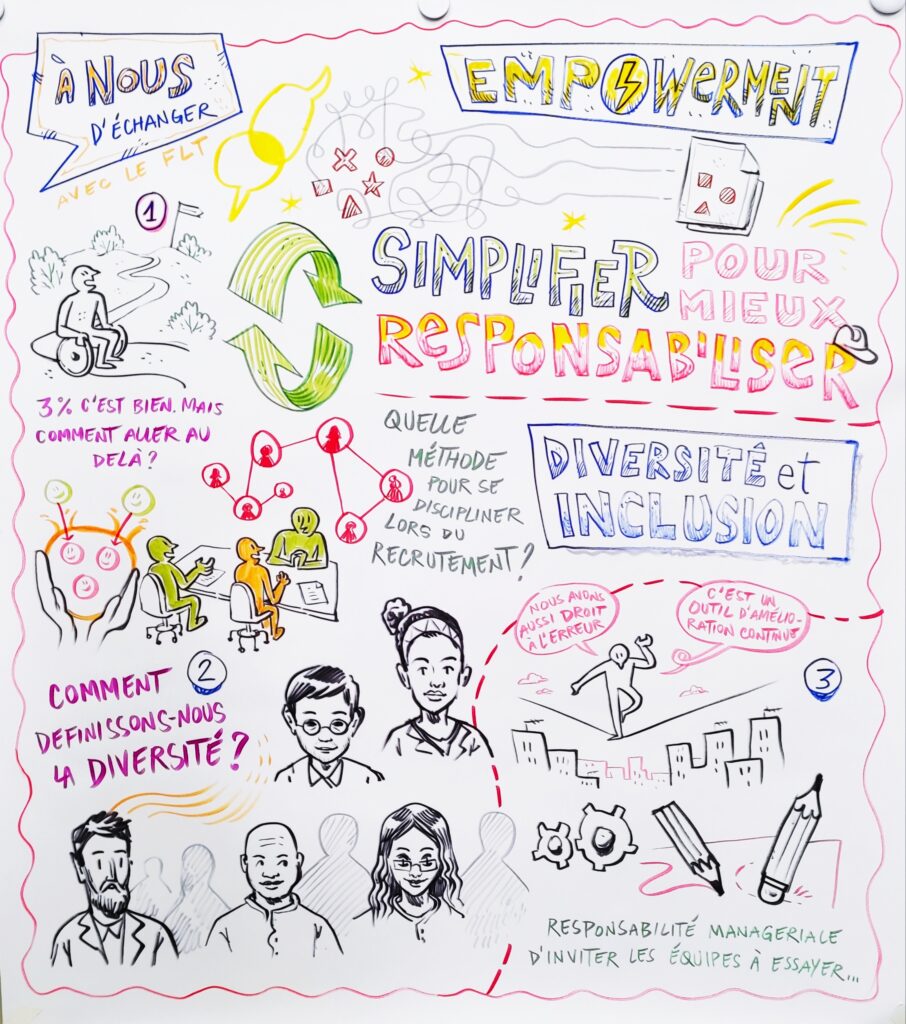 À NOUS
D'ÉCHANGER
AVEC LE FLT
EMPOWERMENT
SIMPLIFIER
POUR
MIEUX
RESPONSABILISER
1
3% C'EST BIEN. MAIS
COMMENT ALLER AU
DELÀ ?
QUELLE
MÉTHODE
POUR SE
DISCIPLINER
LORS DU
RECRUTEMENT ?
DIVERSITÉ et
INCLUSION
2
COMMENT
DEFINISSONS-NOUS
LA DIVERSITÉ ?
NOUS AVONS
AUSSI DROIT
A L'ERREUR
C'EST UN
OUTIL D'AMÉLIO-
RATION CONTINUE
3
RESPONSABILITÉ MANAGERIALE
D'INVITER LES ÉQUIPES À ESSAYER...